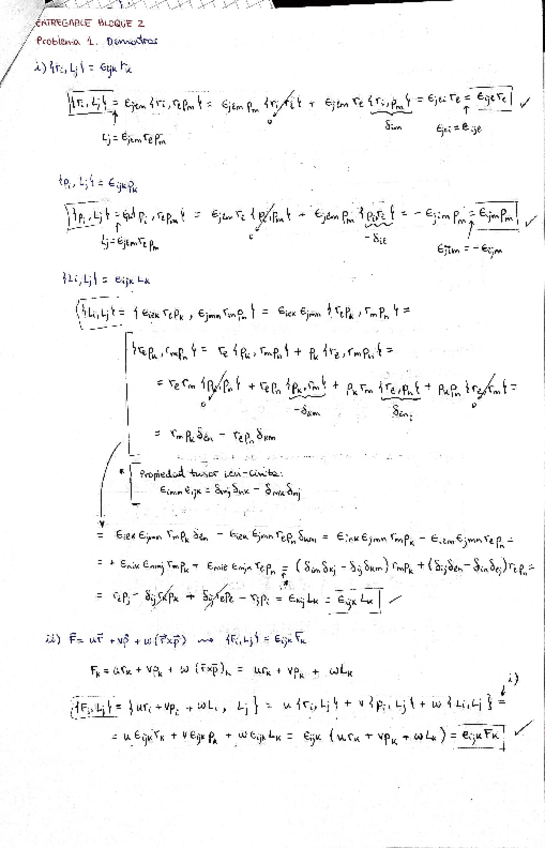 ENTREGABLE BLOQUE 2
Problema 1. Demostrar
i) {r_i, L_j} = ε_ijk r_k
{r_i, L_j} = ε_jℓm {r_i, r_ℓ p_m} = ε_jℓm p_m {r_i, r_ℓ} + ε_jℓm r_ℓ {r_i, p_m} = ε_jℓi r_ℓ = ε_ijℓ r_ℓ ✓
0 δ_im ε_jℓi = ε_ijℓ
L_j = ε_jℓm r_ℓ p_m
{p_i, L_j} = ε_ijk p_k
{p_i, L_j} = {p_i, r_ℓ p_m} = ε_jℓm r_ℓ {p_i, p_m} + ε_jℓm p_m {p_i r_ℓ} = - ε_jim p_m = ε_ijm p_m ✓
L_j = ε_jℓm r_ℓ p_m 0 -δ_iℓ ε_jim = -ε_ijm
{L_i, L_j} = ε_ijk L_k
{L_i, L_j} = {ε_iℓk r_ℓ p_k, ε_jmn r_m p_n} = ε_iℓk ε_jmn {r_ℓ p_k, r_m p_n} =
{r_ℓ p_k, r_m p_n} = r_ℓ {p_k, r_m p_n} + p_k {r_ℓ, r_m p_n} =
= r_ℓ r_m {p_k, p_n} + r_ℓ p_n {p_k, r_m} + p_k r_m {r_ℓ, p_n} + p_k p_n {r_ℓ, r_m} =
0 -δ_km δ_ℓn 0
= r_m p_k δ_ℓn - r_ℓ p_n δ_km
* Propiedad tensor Levi-Civita:
ε_imn ε_ijk = δ_mj δ_nk - δ_mk δ_nj
= ε_iℓk ε_jmn r_m p_k δ_ℓn - ε_iℓk ε_jmn r_ℓ p_n δ_km = ε_ink ε_jmn r_m p_k - ε_iℓm ε_jmn r_ℓ p_n =
= + ε_nik ε_nmj r_m p_k + ε_miℓ ε_mjn r_ℓ p_n = (δ_im δ_kj - δ_ij δ_km) r_m p_k + (δ_ij δ_ℓn - δ_in δ_ℓj) r_ℓ p_n =
= r_i p_j - δ_ij r_k p_k + δ_ij r_ℓ p_ℓ - r_j p_i = ε_kij L_k = ε_ijk L_k ✓
ii) F⃗ = u r⃗ + v p⃗ + w (r⃗×p⃗) ⟿ {F_i, L_j} = ε_ijk F_k
F_k = u r_k + v p_k + w (r⃗×p⃗)_k = u r_k + v p_k + w L_k
i)
{F_i, L_j} = {u r_i + v p_i + w L_i, L_j} = u {r_i, L_j} + v {p_i, L_j} + w {L_i, L_j} =
= u ε_ijk r_k + v ε_ijk p_k + w ε_ijk L_k = ε_ijk {u r_k + v p_k + w L_k} = ε_ijk F_k ✓